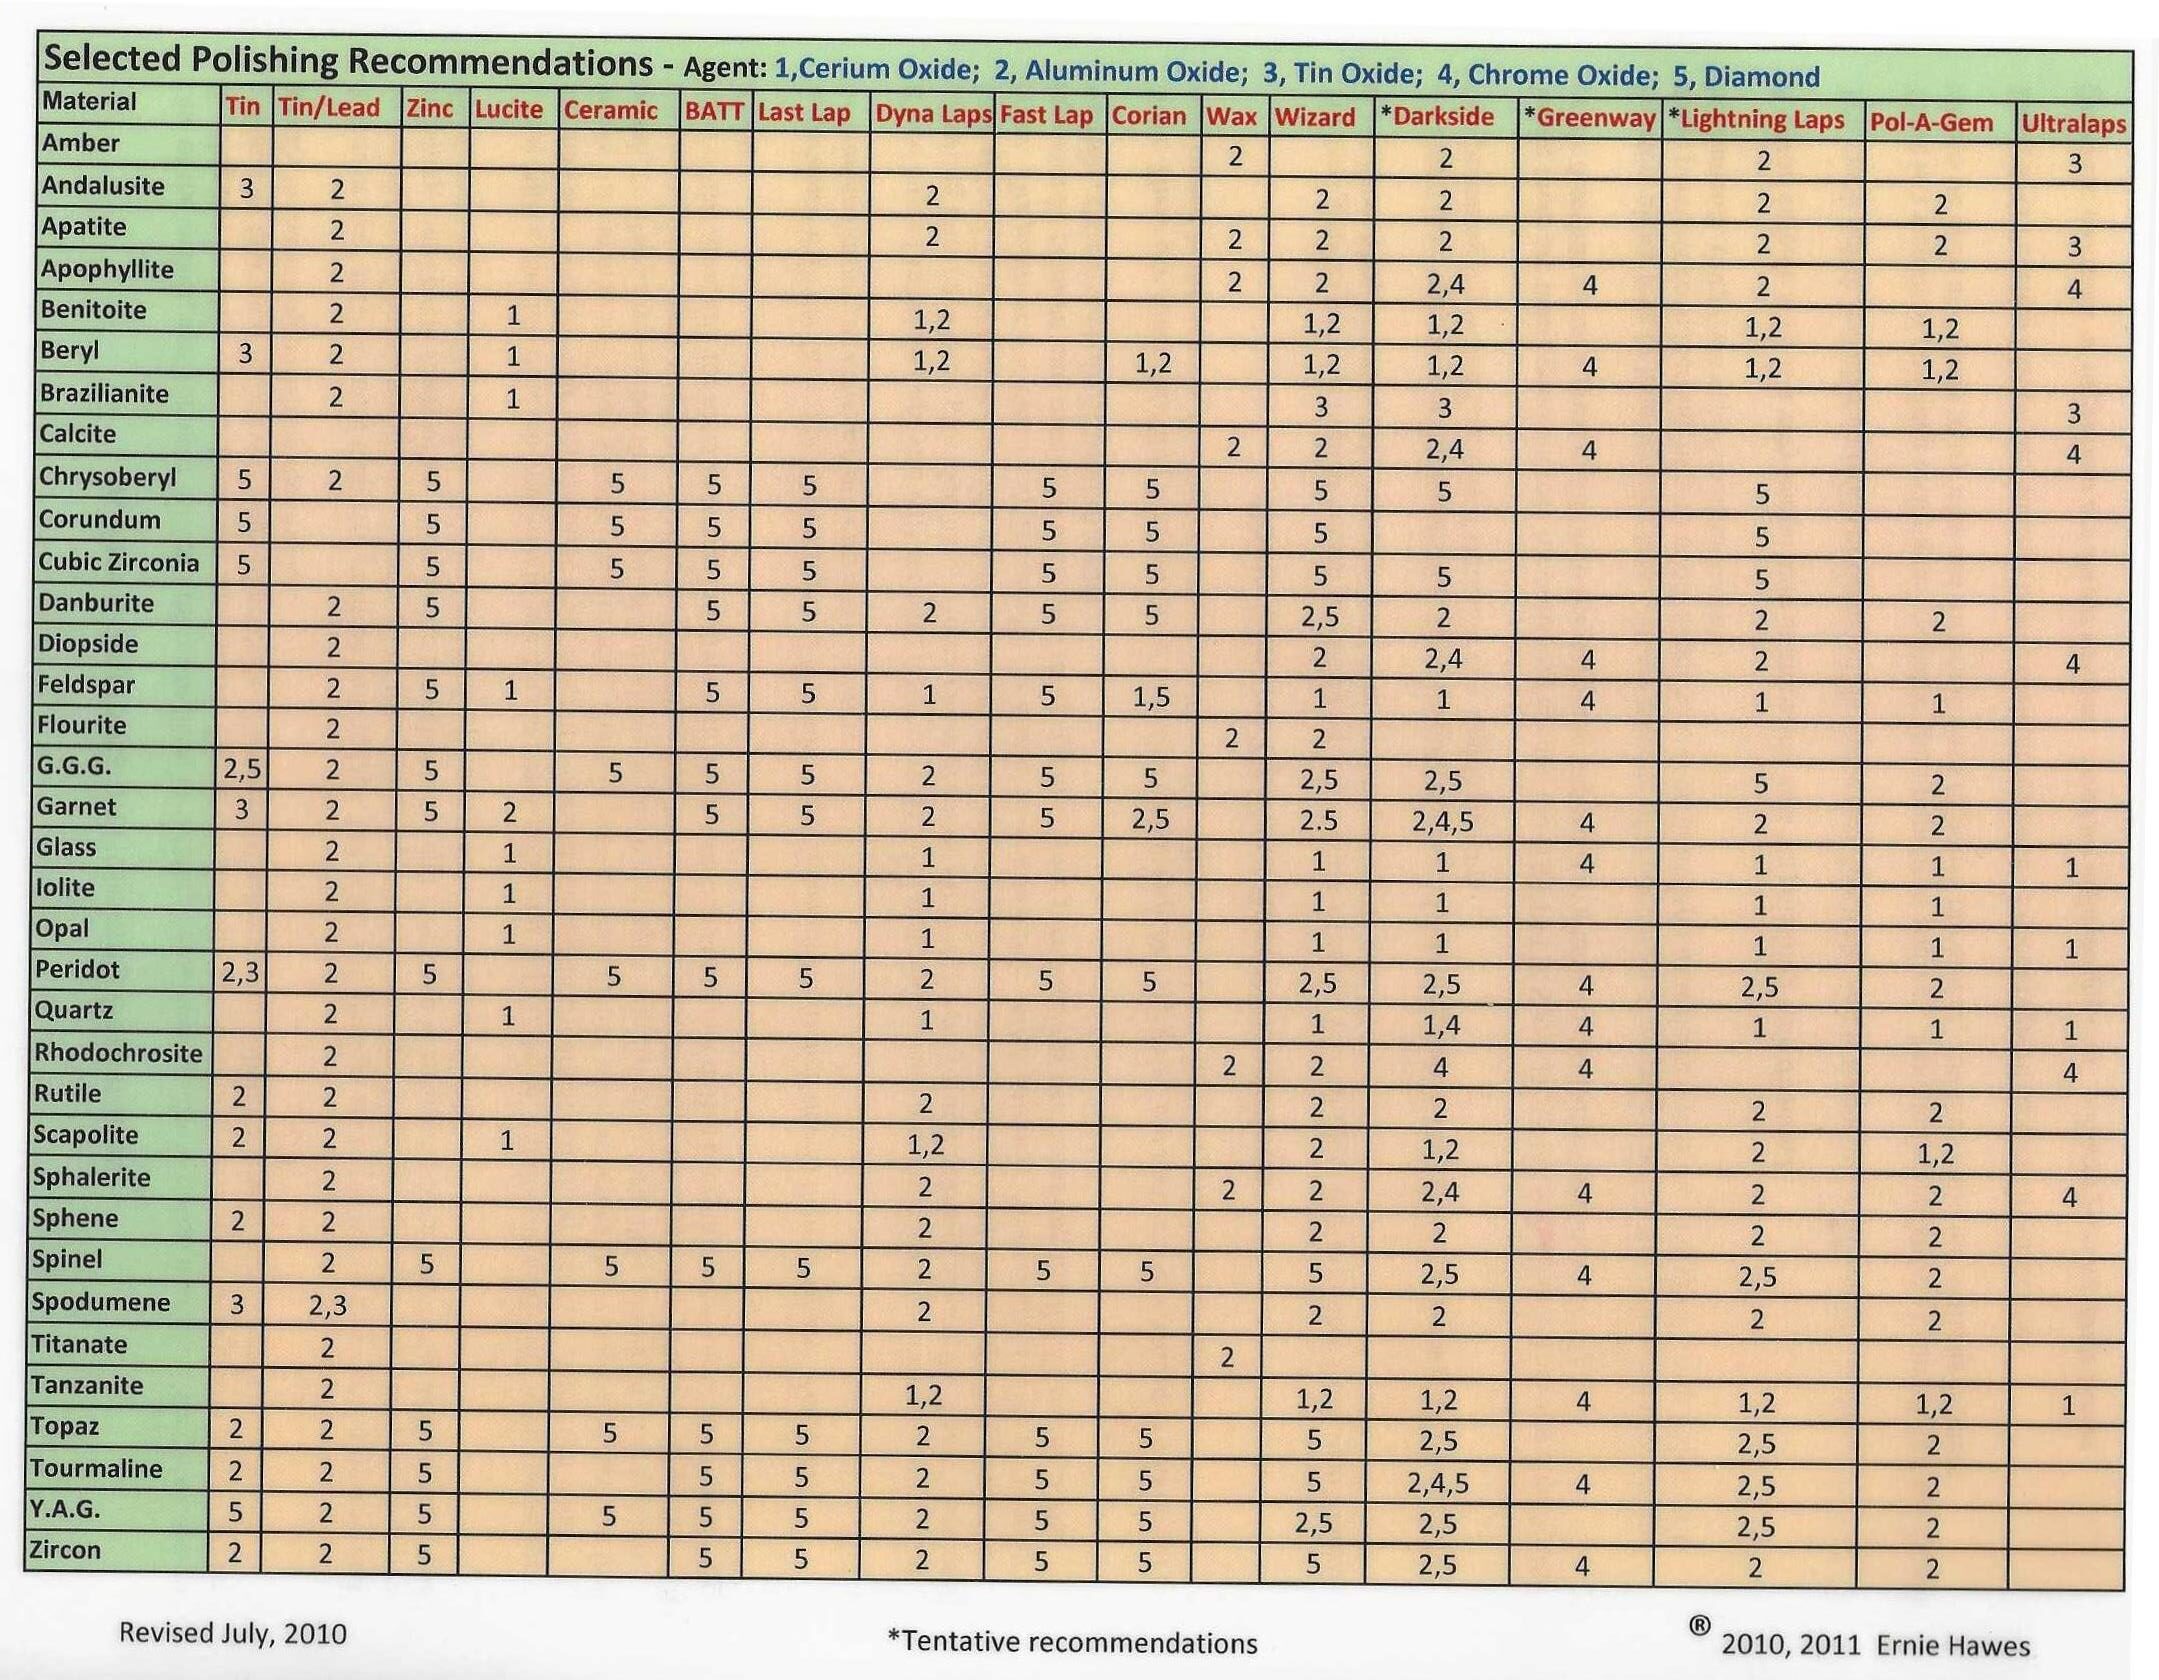 Selected Polishing Recommendations - Agent: 1,Cerium Oxide; 2, Aluminum Oxide; 3, Tin Oxide; 4, Chrome Oxide; 5, Diamond
Material Tin Tin/Lead Zinc Lucite Ceramic BATT Last Lap Dyna Laps Fast Lap Corian Wax Wizard *Darkside *Greenway *Lightning Laps Pol-A-Gem Ultralaps
Amber 2 2 2 3
Andalusite 3 2 2 2 2 2 2
Apatite 2 2 2 2 2 2 2 3
Apophyllite 2 2 2 2,4 4 2 4
Benitoite 2 1 1,2 1,2 1,2 1,2 1,2
Beryl 3 2 1 1,2 1,2 1,2 1,2 4 1,2 1,2
Brazilianite 2 1 3 3 3
Calcite 2 2 2,4 4 4
Chrysoberyl 5 2 5 5 5 5 5 5 5 5 5
Corundum 5 5 5 5 5 5 5 5 5
Cubic Zirconia 5 5 5 5 5 5 5 5 5 5
Danburite 2 5 5 5 2 5 5 2,5 2 2 2
Diopside 2 2 2,4 4 2 4
Feldspar 2 5 1 5 5 1 5 1,5 1 1 4 1 1
Flourite 2 2 2
G.G.G. 2,5 2 5 5 5 5 2 5 5 2,5 2,5 5 2
Garnet 3 2 5 2 5 5 2 5 2,5 2.5 2,4,5 4 2 2
Glass 2 1 1 1 1 4 1 1 1
Iolite 2 1 1 1 1 1 1
Opal 2 1 1 1 1 1 1 1
Peridot 2,3 2 5 5 5 5 2 5 5 2,5 2,5 4 2,5 2
Quartz 2 1 1 1 1,4 4 1 1 1
Rhodochrosite 2 2 2 4 4 4
Rutile 2 2 2 2 2 2 2
Scapolite 2 2 1 1,2 2 1,2 2 1,2
Sphalerite 2 2 2 2 2,4 4 2 2 4
Sphene 2 2 2 2 2 2 2
Spinel 2 5 5 5 5 2 5 5 5 2,5 4 2,5 2
Spodumene 3 2,3 2 2 2 2 2
Titanate 2 2
Tanzanite 2 1,2 1,2 1,2 4 1,2 1,2 1
Topaz 2 2 5 5 5 5 2 5 5 5 2,5 2,5 2
Tourmaline 2 2 5 5 5 2 5 5 5 2,4,5 4 2,5 2
Y.A.G. 5 2 5 5 5 5 2 5 5 2,5 2,5 2,5 2
Zircon 2 2 5 5 5 2 5 5 5 2,5 4 2 2
Revised July, 2010 *Tentative recommendations ® 2010, 2011 Ernie Hawes